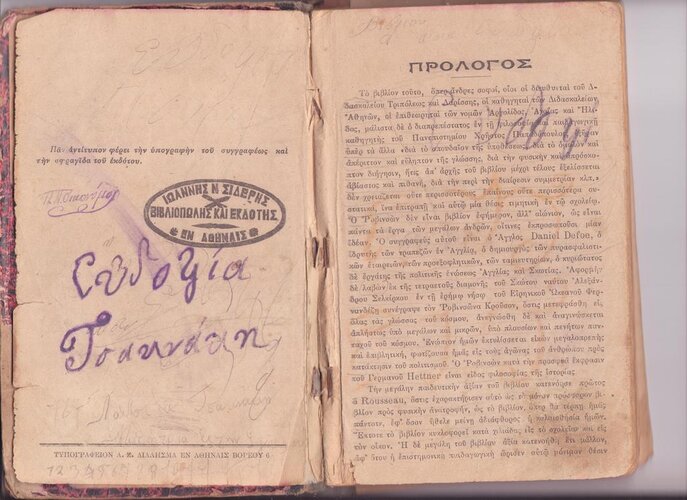 Πᾶν ἀντίτυπον φέρει τὴν ὑπογραφὴν τοῦ συγγραφέως καὶ
τὴν σφραγῖδα τοῦ ἐκδότου.
ΙΩΑΝΝΗΣ Ν. ΣΙΔΕΡΗΣ
ΒΙΒΛΙΟΠΩΛΗΣ ΚΑΙ ΕΚΔΟΤΗΣ
ΕΝ ΑΘΗΝΑΙΣ
Εὐδοξία
Τσαννάκη
ΤΥΠΟΓΡΑΦΕΙΟΝ Α. Ζ. ΔΙΑΛΗΣΜΑ ΕΝ ΑΘΗΝΑΙΣ ΒΟΡΕΟΥ 6
ΠΡΟΛΟΓΟΣ
Τὸ βιβλίον τοῦτο, ὅπερ ἄνδρες σοφοί, οἷοι οἱ διευθυνταὶ τοῦ Δι-
δασκαλείου Τριπόλεως καὶ Λαρίσσης, οἱ καθηγηταὶ τῶν Διδασκαλείων
Ἀθηνῶν, οἱ ἐπιθεωρηταὶ τῶν νομῶν Ἀργολίδος, Ἀχαΐας καὶ Ἠλεί-
δος, μάλιστα δὲ ὁ διαπρεπέστατος ἐν τῇ φιλοσοφίᾳ καὶ παιδαγωγικῇ
καθηγητὴς τοῦ Πανεπιστημίου Χρῆστος Παπαδόπουλος
ὑπὲρ τὰ ἄλλα «διὰ τὸ σπουδαῖον τῆς ὑποθέσεως, διὰ τὸ ὁμαλὸν καὶ
ἀπέριττον καὶ εὔληπτον τῆς γλώσσης, διὰ τὴν φυσικὴν καὶ
διήγησιν, ἥτις ἀπ' ἀρχῆς τοῦ βιβλίου μέχρι τέλους ἐξελίσσεται
ἀβίαστος καὶ πιθανή, διὰ τὴν περὶ τὴν διαίρεσιν συμμετρίαν κλπ.,
δὲν χρειάζεται οὔτε περισσοτέρους ἐπαίνους οὔτε περισσότερα συ-
στατικά, ἵνα ἐπιτραπῇ καὶ αὐτῷ μία θέσις τιμητικὴ ἐν τῷ σχολείῳ.
Ὁ Ῥοβινσὼν δὲν εἶναι βιβλίον ἐφήμερον, ἀλλ' αἰώνιον, ὡς εἶναι
πάντα τὰ ἔργα τῶν μεγάλων ἀνδρῶν, οἵτινες ἐκπροσωποῦσι μίαν
ἰδέαν Ὁ συγγραφεὺς αὐτοῦ εἶναι ὁ Ἄγγλος Daniel Defoe, ὁ
ἱδρυτὴς τῶν τραπεζῶν ἐν Ἀγγλίᾳ, ὁ δημιουργὸς τῶν πυρασφαλιστι-
κῶν ἑταιρειῶν, τῶν προεξοφλητικῶν, τῶν ταμιευτηρίων, ὁ κυριώτατος
δὲ ἐργάτης τῆς πολιτικῆς ἑνώσεως Ἀγγλίας καὶ Σκωτίας. Ἀφορμὴν
δὲ λαβὼν ἐκ τῆς τετραετοῦς διαμονῆς τοῦ Σκώτου ναύτου Ἀλεξάν-
δρου Σελκίρκου ἐν τῇ ἐρήμῳ νήσῳ τοῦ Εἰρηνικοῦ Ὠκεανοῦ Φερ-
νανδέζῃ συνέγραψε τὸν Ῥοβινσῶνα Κροῦσον, ὅστις μετεφράσθη εἰς
ὅλας τὰς γλώσσας τοῦ κόσμου, ἀνεγνώσθη δὲ καὶ ἀναγινώσκεται
ἀπλήστως ὑπὸ μεγάλων καὶ μικρῶν, ὑπὸ πλουσίων καὶ πενήτων παν-
ταχοῦ τοῦ κόσμου. Ἐνώπιον ἡμῶν ἐκτυλίσσεται εἰκὼν μεγαλοπρεπὴς
καὶ ἐπιβλητική, φωτίζουσα ἡμᾶς εἰς τοὺς ἀγῶνας τοῦ ἀνθρώπου πρὸς
κατάκτησιν τοῦ πολιτισμοῦ. Ὁ Ῥοβινσὼν κατὰ τὴν προσφυᾶ ἔκφρασιν
τοῦ Γερμανοῦ Hettner εἶναι εἶδος φιλοσοφίας τῆς ἱστορίας.
Τὴν μεγάλην παιδευτικὴν ἀξίαν τοῦ βιβλίου κατενόησε πρῶτος
ὁ Rousseau, ὅστις ἐχαρακτήρισεν αὐτὸ ὡς τὸ μόνον πρόσφορον βι-
βλίον πρὸς φυσικὴν ἀνατροφήν, ὡς τὸ βιβλίον, ὅπερ θὰ τέρπῃ ἡμᾶς
πάντοτε, ἐφ' ὅσον ἤθελε μείνῃ ἀδιάφθορος ἡ καλαισθησία ἡμῶν.
Ἔκτοτε τὸ βιβλίον κυκλοφορεῖ κατὰ χιλιάδας εἰς τὸ σχολεῖον καὶ εἰς
τὸν οἶκον. Ἡ δὲ μεγάλη τοῦ βιβλίου ἀξία κατενοήθη, ἔτι μᾶλλον,
ἐφ' ὅσον ἡ ἐπιστημονικὴ παιδαγωγικὴ ὥρισεν αὐτῷ μόνιμον θέσιν